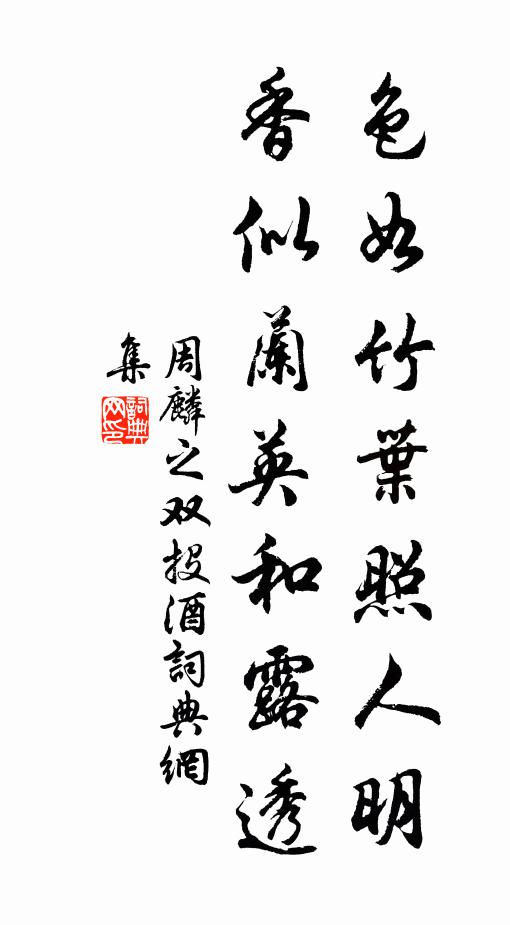 色如竹葉照人明
香似蘭英和露透
周麟之双投酒詞典網
集
詞典
网印